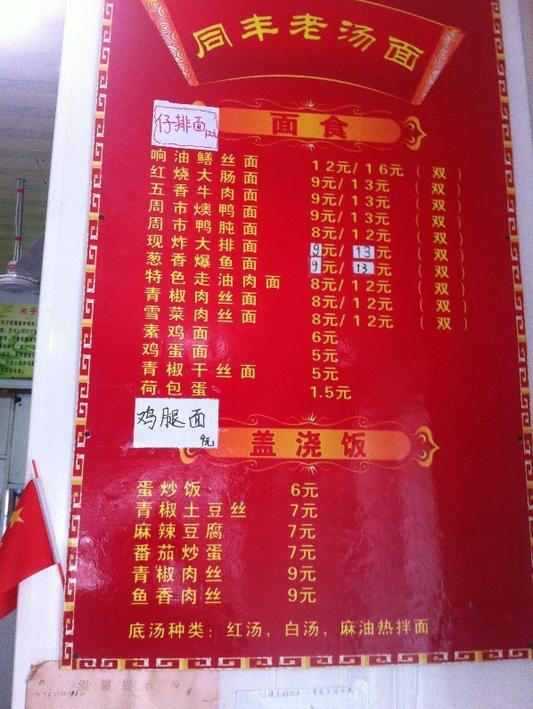 同丰老汤面
仔排面 12元
面食
响油鳝丝面 12元/16元（双）
红烧大肠面 9元/13元（双）
五香牛肉面 9元/13元（双）
周市燠鸭面 9元/13元（双）
周市鸭肫面 8元/12元（双）
现炸大排面 9元/13元（双）
葱香爆鱼面 9元/13元（双）
特色走油肉面 8元/12元（双）
青椒肉丝面 8元/12元（双）
雪菜肉丝面 8元/12元（双）
素鸡面 6元
鸡蛋面 5元
青椒干丝面 5元
荷包蛋 1.5元
鸡腿面 9元
盖浇饭
蛋炒饭 6元
青椒土豆丝 7元
麻辣豆腐 7元
番茄炒蛋 7元
青椒肉丝 9元
鱼香肉丝 9元
底汤种类：红汤，白汤，麻油热拌面
温馨提示